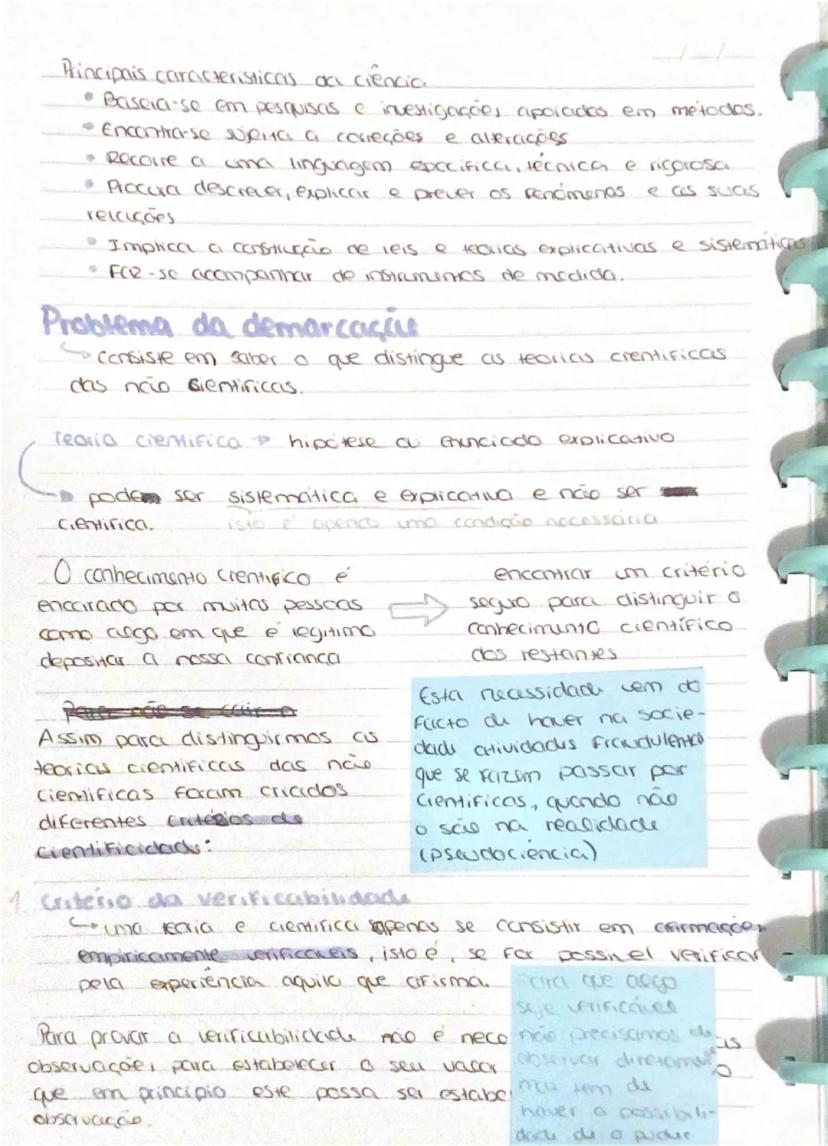 Principais características da ciência
• Baseia-se em pesquisas e investigações apoiadas em métodos.
• Encontra-se sujeita a correções e alterações
• Recorre a uma linguagem específica, técnica e rigorosa
• Procura descrever, explicar e prever os fenómenos e as suas
relações
• Implica a construção de leis e teorias explicativas e sistemáticas
• Faz-se acompanhar de instrumentos de medida.
Problema da demarcação
↳ consiste em saber o que distingue as teorias cientificas
das não cientificas.
Teoria científica → hipótese ou enunciado explicativo
pode ser sistemática e explicativa e não ser
científica. isto é apenas uma condição necessária
O conhecimento científico é
encarado por muitas pessoas
como algo em que é legítimo
depositar a nossa confiança
encontrar um critério
seguro para distinguir o
conhecimento científico
dos restantes
Para não se cair a
Assim para distinguirmos as
teorias científicas das não
científicas foram criados
diferentes critérios de
cientificidade:
Esta necessidade vem do
facto de haver na socie-
dade atividades fraudulentas
que se fazem passar por
científicas, quando não
o são na realidade
(pseudociência)
1. Critério da verificabilidade
↳ uma teoria é científica apenas se consistir em afirmações
empiricamente verificáveis, isto é, se for possível verificar
pela experiência aquilo que afirma.
Para provar a verificabilidade não é nece as
observações para estabelecer o seu valor o
que em princípio este possa ser estabe
observação.
Para que algo
seje verificável
não precisamos de
observar diretamente
mas tem de
haver a possibili-
dade de o puder